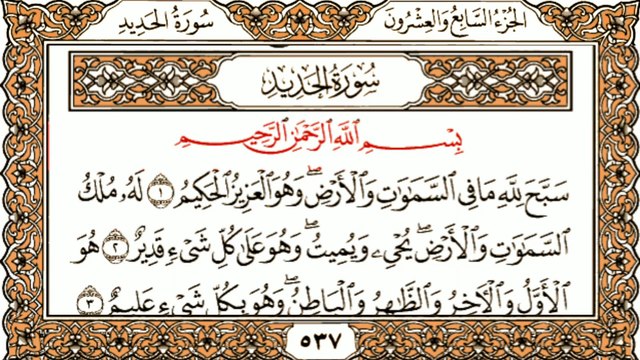 الجزء السابع والعشرون سورة الحديد
سُورَةُ الحَدِيدِ
بِسْمِ ٱللَّهِ ٱلرَّحْمَٰنِ ٱلرَّحِيمِ
سَبَّحَ لِلَّهِ مَا فِي ٱلسَّمَٰوَٰتِ وَٱلْأَرْضِۖ وَهُوَ ٱلْعَزِيزُ ٱلْحَكِيمُ ١ لَهُۥ مُلْكُ
ٱلسَّمَٰوَٰتِ وَٱلْأَرْضِۖ يُحْيِۦ وَيُمِيتُۖ وَهُوَ عَلَىٰ كُلِّ شَيْءٍ قَدِيرٌ ٢ هُوَ
ٱلْأَوَّلُ وَٱلْءَاخِرُ وَٱلظَّٰهِرُ وَٱلْبَاطِنُۖ وَهُوَ بِكُلِّ شَيْءٍ عَلِيمٌ ٣
٥٣٧